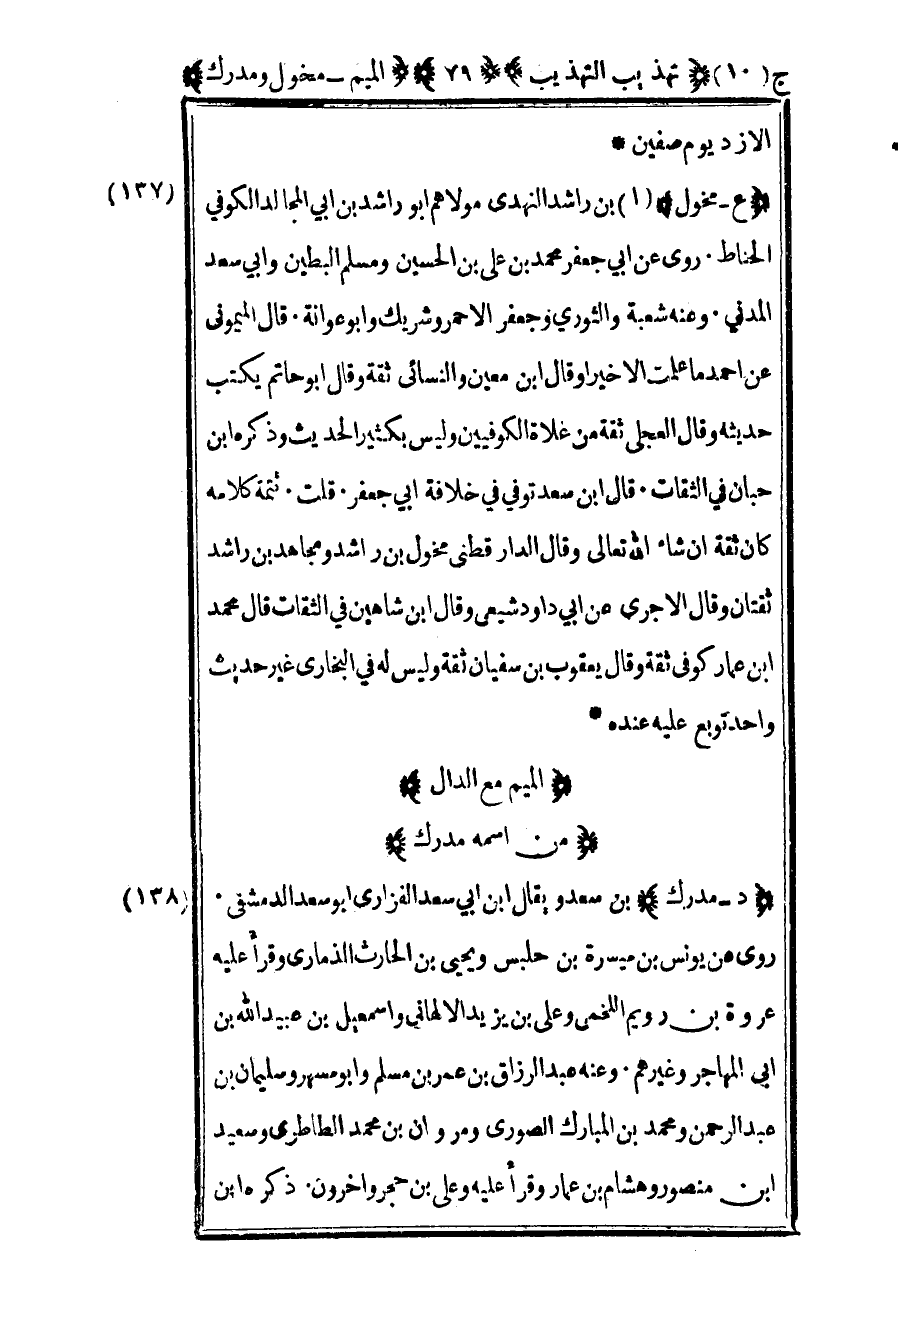 ج (١٠) ﴿ تهذيب التهذيب ﴾ ﴿ ٧٩ ﴾ ﴿ الميم - مخول ومدرك ﴾
الازد يوم صفين *
(١٣٧) ﴿ ع - مخول ﴾ (١) بن راشد النهدى مولاهم ابو راشد بن ابي المجالد الكوفي
الحناط . روى عن ابي جعفر محمد بن على بن الحسين ومسلم البطين وابي سعد
المدني . وعنه شعبة والثوري وجعفر الاحمر وشريك وابو عوانة . قال الميمونى
عن احمد ما علمت الاخيرا وقال ابن معين والنسائى ثقة وقال ابو حاتم يكتب
حديثه وقال العجلى ثقة من غلاة الكوفيين وليس بكثير الحديث وذكره ابن
حبان في الثقات . قال ابن سعد توفي في خلافة ابي جعفر . قلت . تتمة كلامه
كان ثقة ان شاء الله تعالى وقال الدار قطنى مخول بن راشد ومجاهد بن راشد
ثقتان وقال الاجرى عن ابي داود شيعى وقال ابن شاهين في الثقات قال محمد
ابن عمار كوفى ثقة وقال يعقوب بن سفيان ثقة وليس له في البخارى غير حديث
واحد توبع عليه عنده *
﴿ الميم مع الدال ﴾
﴿ من اسمه مدرك ﴾
(١٣٨) ﴿ د - مدرك ﴾ بن سعد ويقال ابن ابي سعد الفزارى ابو سعد الدمشقى .
روى عن يونس بن ميسرة بن حلبس ويحيى بن الحارث الذمارى وقرأ عليه
عروة بن رويم اللخمى وعلى بن يزيد الالهاني واسمعيل بن عبيد الله بن
ابي المهاجر وغيرهم . وعنه عبد الرزاق بن عمر بن مسلم وابو مسهر وسليمان بن
عبد الرحمن ومحمد بن المبارك الصورى ومروان بن محمد الطاطرى وسعيد
ابن منصور وهشام بن عمار وقرأ عليه وعلى بن حجر واخرون . ذكره ابن